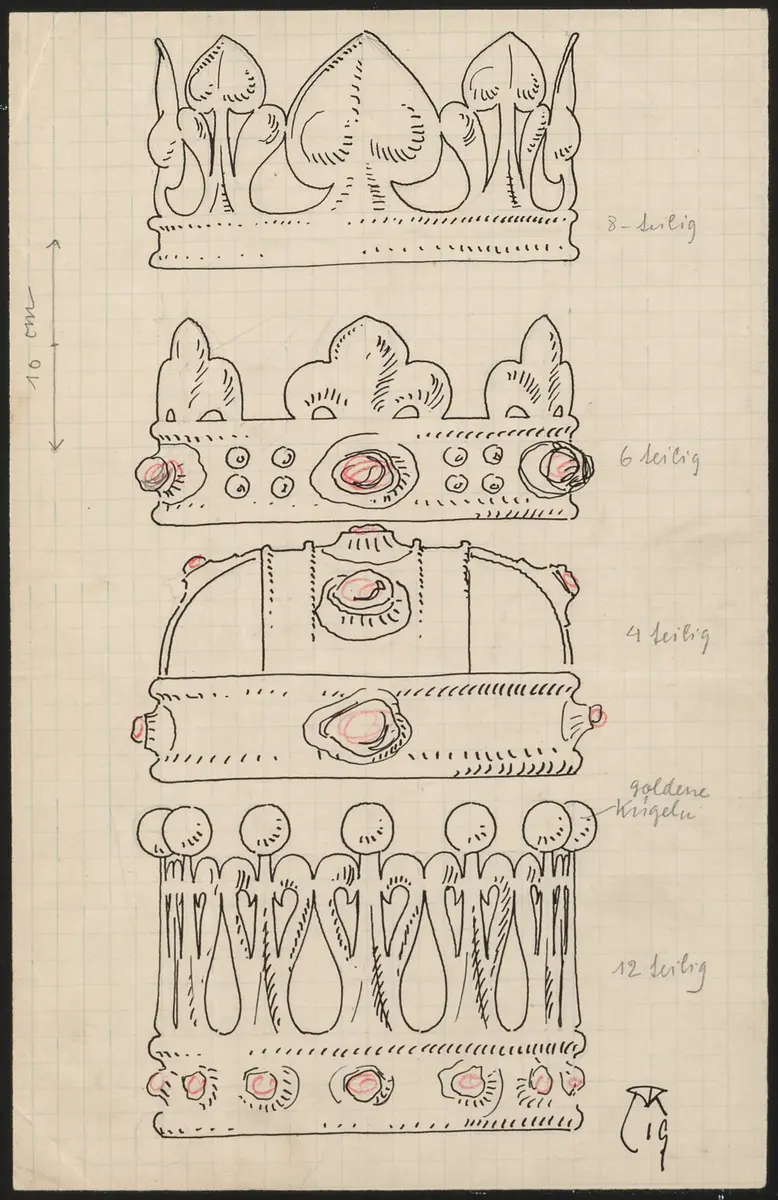 8-teilig
10 cm
6 teilig
4 teilig
goldene
Kugeln
12 teilig
19